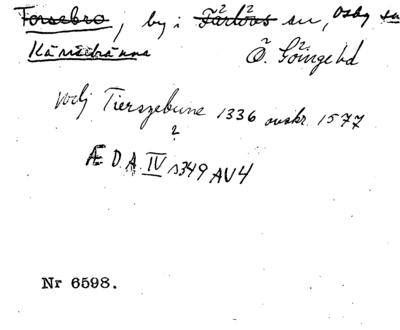 Forsebro, by i Färlövs sn, Osby sn
Ö. Göinge hd
vadj Tierszebune 1336 avskr. 1577
?
Æ D.A. IV s349 AV4
Nr 6598.